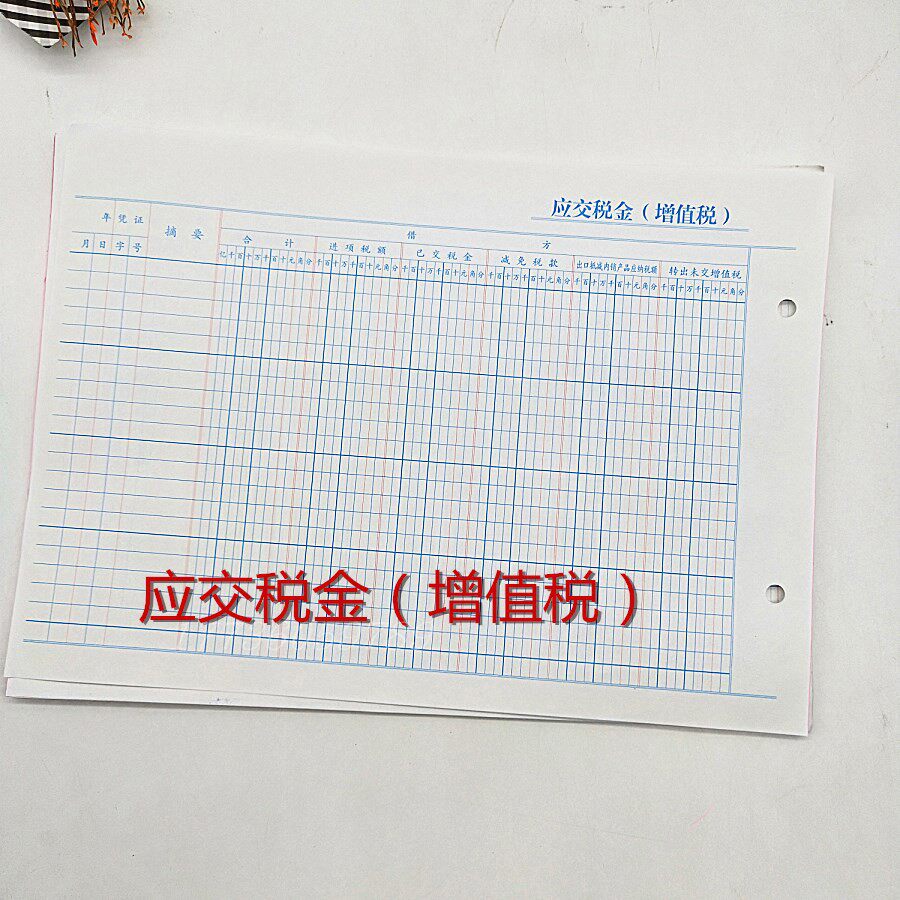 应交税金（增值税）
年 凭证 摘要 借方
月 日 字 号 合计 进项税额 已交税金 减免税款 出口抵减内销产品应纳税额 转出未交增值税
亿千百十万千百十元角分 千百十万千百十元角分 千百十万千百十元角分 千百十万千百十元角分 千百十万千百十元角分 千百十万千百十元角分
应交税金（增值税）